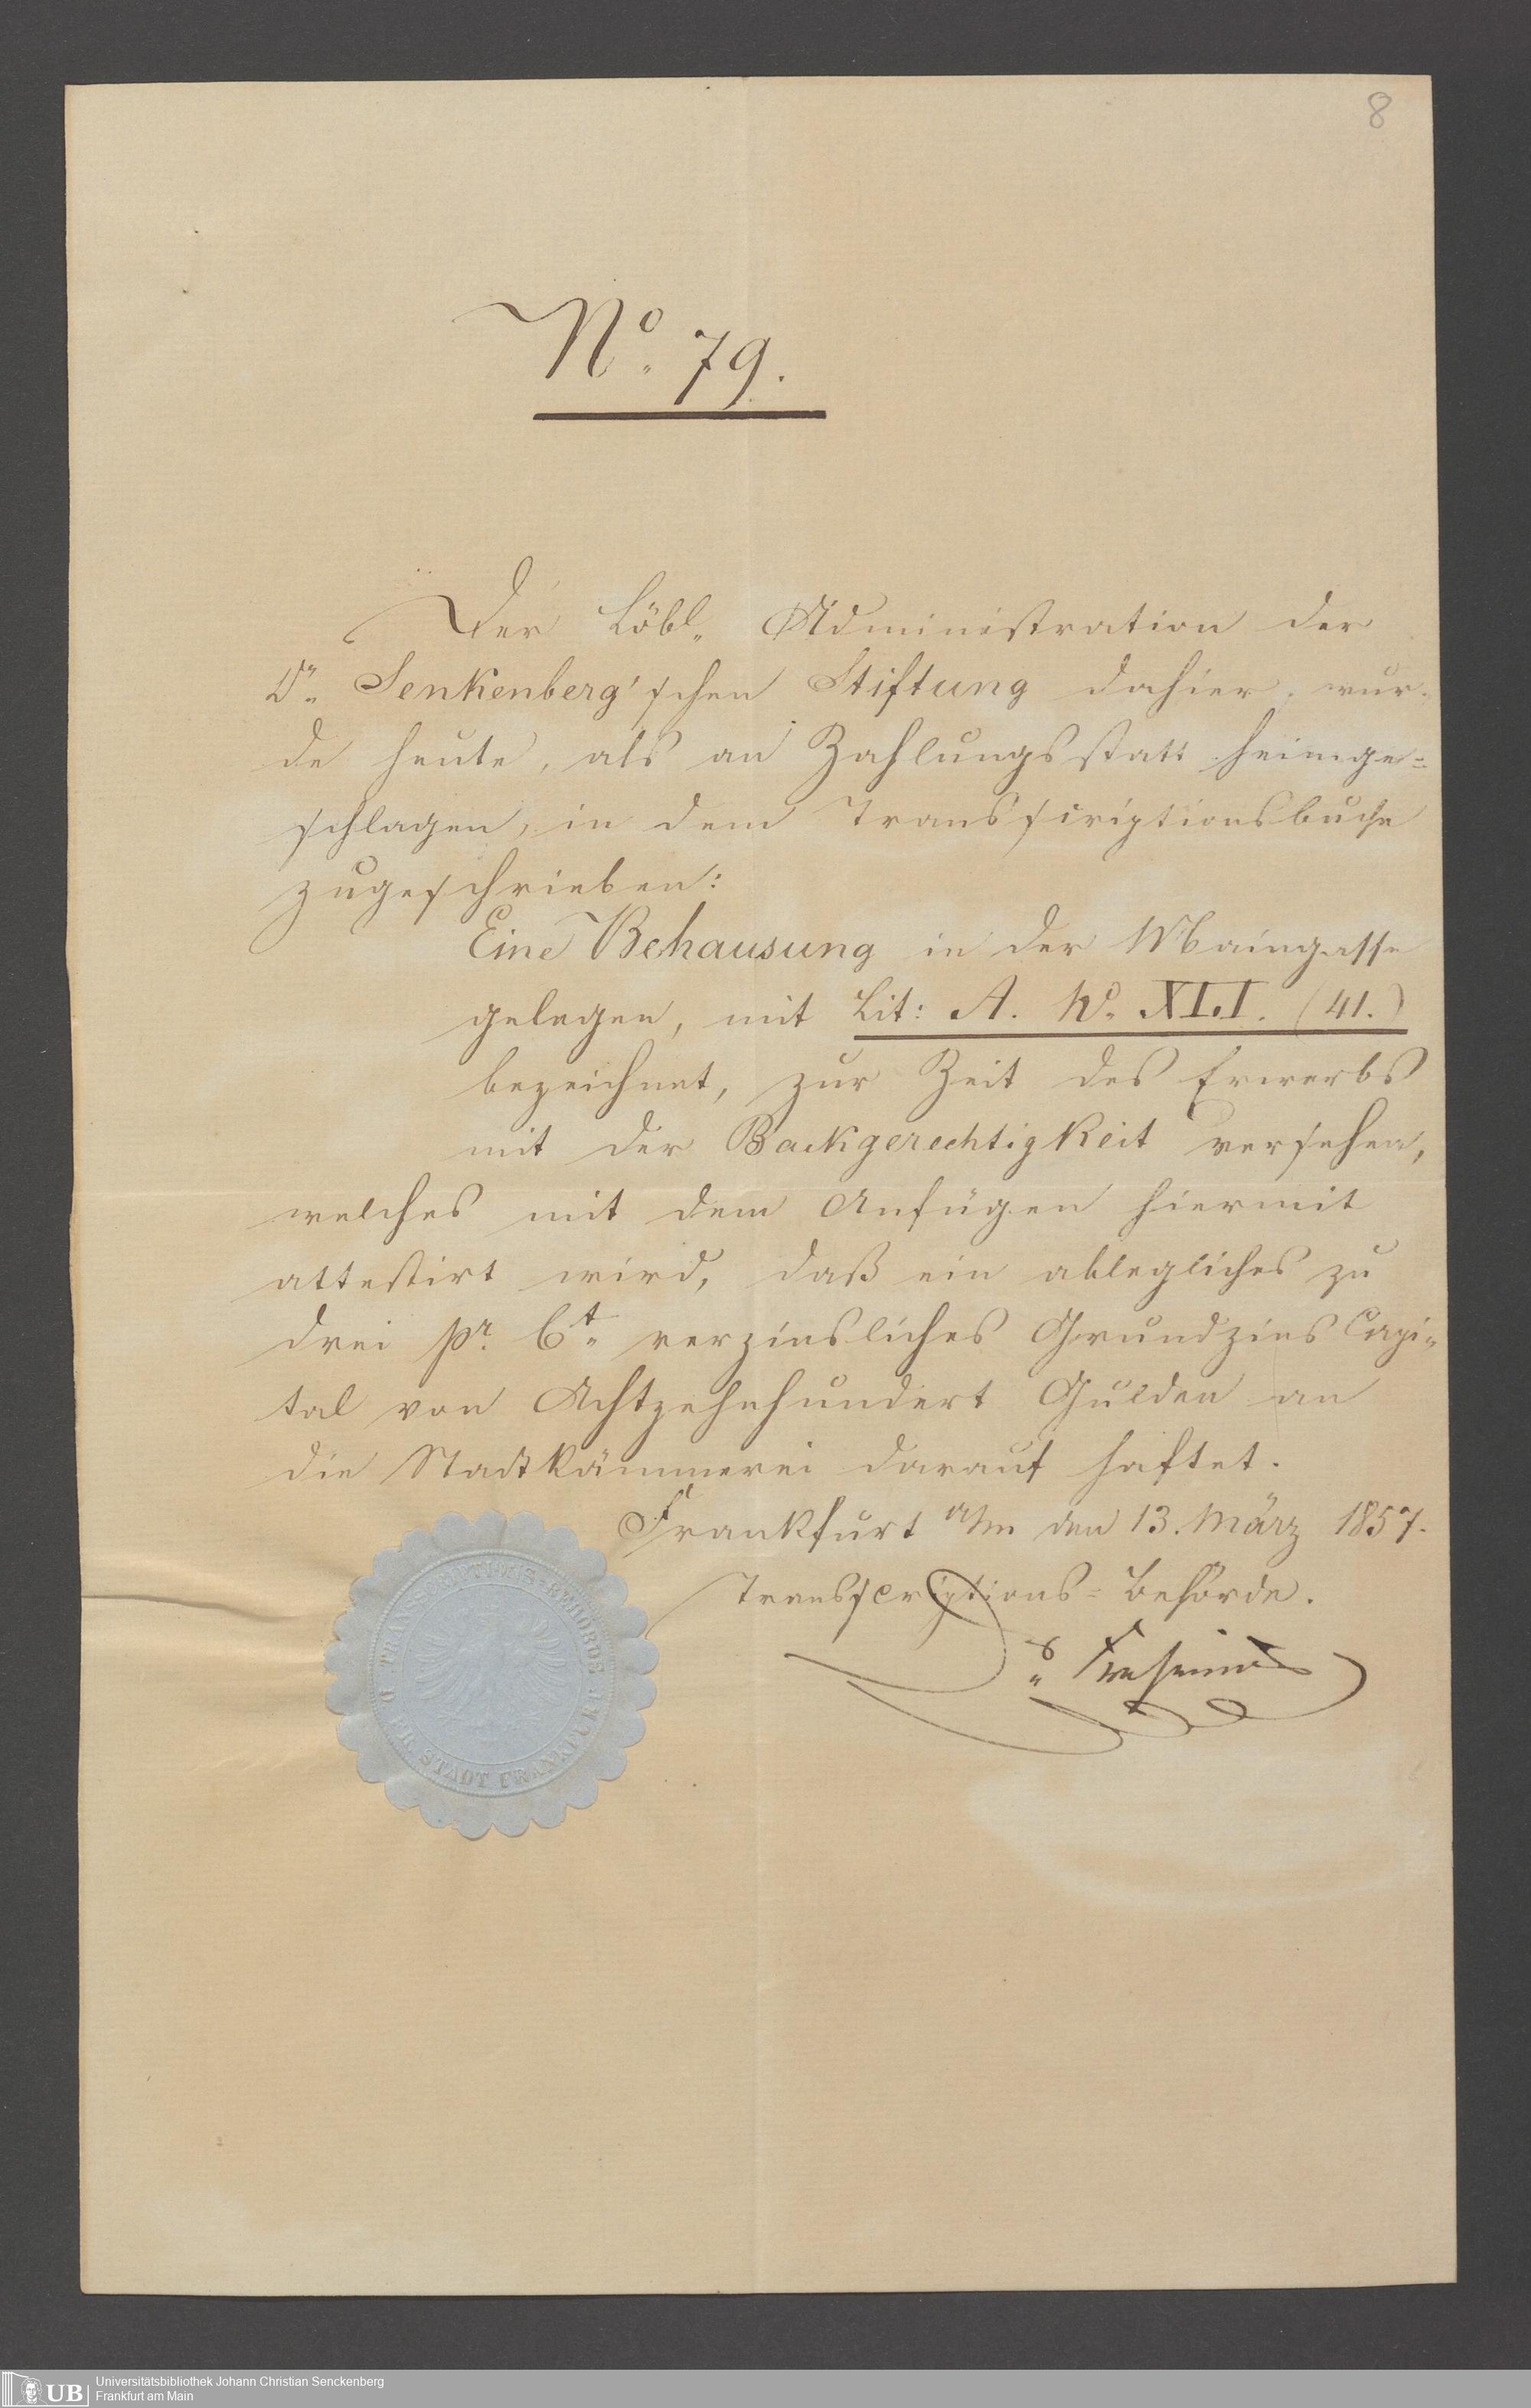 8
No. 79.
Der Löbl. Administration der
Dr. Senkenberg'schen Stiftung dahier, wur-
de heute, als an Zahlungsstatt heimge-
schlagen, in dem Transscriptionsbuche
zugeschrieben:
Eine Behausung in der Maingasse
gelegen, mit Lit: A. No. XLI. (41.)
bezeichnet, zur Zeit des Erwerbs
mit der Backgerechtigkeit versehen,
welches mit dem Anfügen hiermit
attestirt wird, daß ein ablegliches zu
drei pr. Ct. verzinsliches Grundzins Capi-
tal von Achtzehnhundert Gulden an
die Stadtkämmerei darauf haftet.
Frankfurt a/m den 13. März 1857.
Transscriptions-Behörde.
Dr. Fresenius
TRANSSCRIPTIONS-BEHÖRDE
DER STADT FRANKFURT
UB
Universitätsbibliothek Johann Christian Senckenberg
Frankfurt am Main